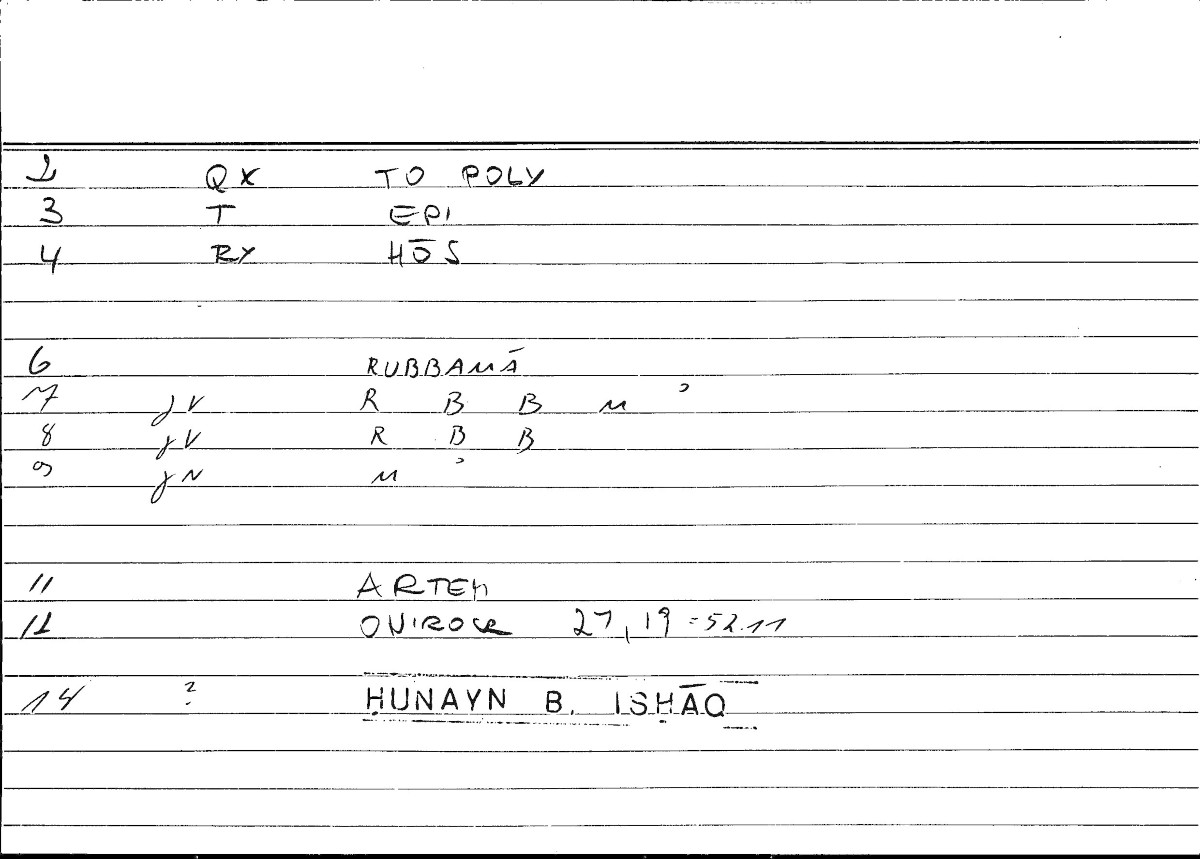 2 QX TO POLY
3 T EPI
4 RY HŌS
6 RUBBAMĀ
7 gV R B B M ʾ
8 gV R B B
9 gN M ʾ
11 ARTEM
12 ONIROCR 27,19 = 52.11
14 ? ḤUNAYN B. ISḤĀQ